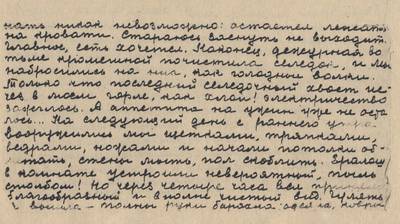 нать никак невозможно: остается лежать
на кровати. Стараюсь заснуть не выходит.
Главное, есть хочется. Наконец, дежурная во
тьме кромешной почистила селедок, и мы
набросились на них, как голодные волки.
Только что последний селедочный хвост ис-
чез в моем горле, как алой! электричество
зажглось. А аппетита на ужин уже не оста
лось... На следующий день с раннего утра
вооружились мы щетками, тряпками,
ведрами, ножами и начали потолки об-
метать, стены мыть, пол скоблить. Ералаш
в комнате устроили невероятный, пыль
столбом! Но через четыре часа все приняло
благообразный и вполне чистый вид.
полны руки барахла